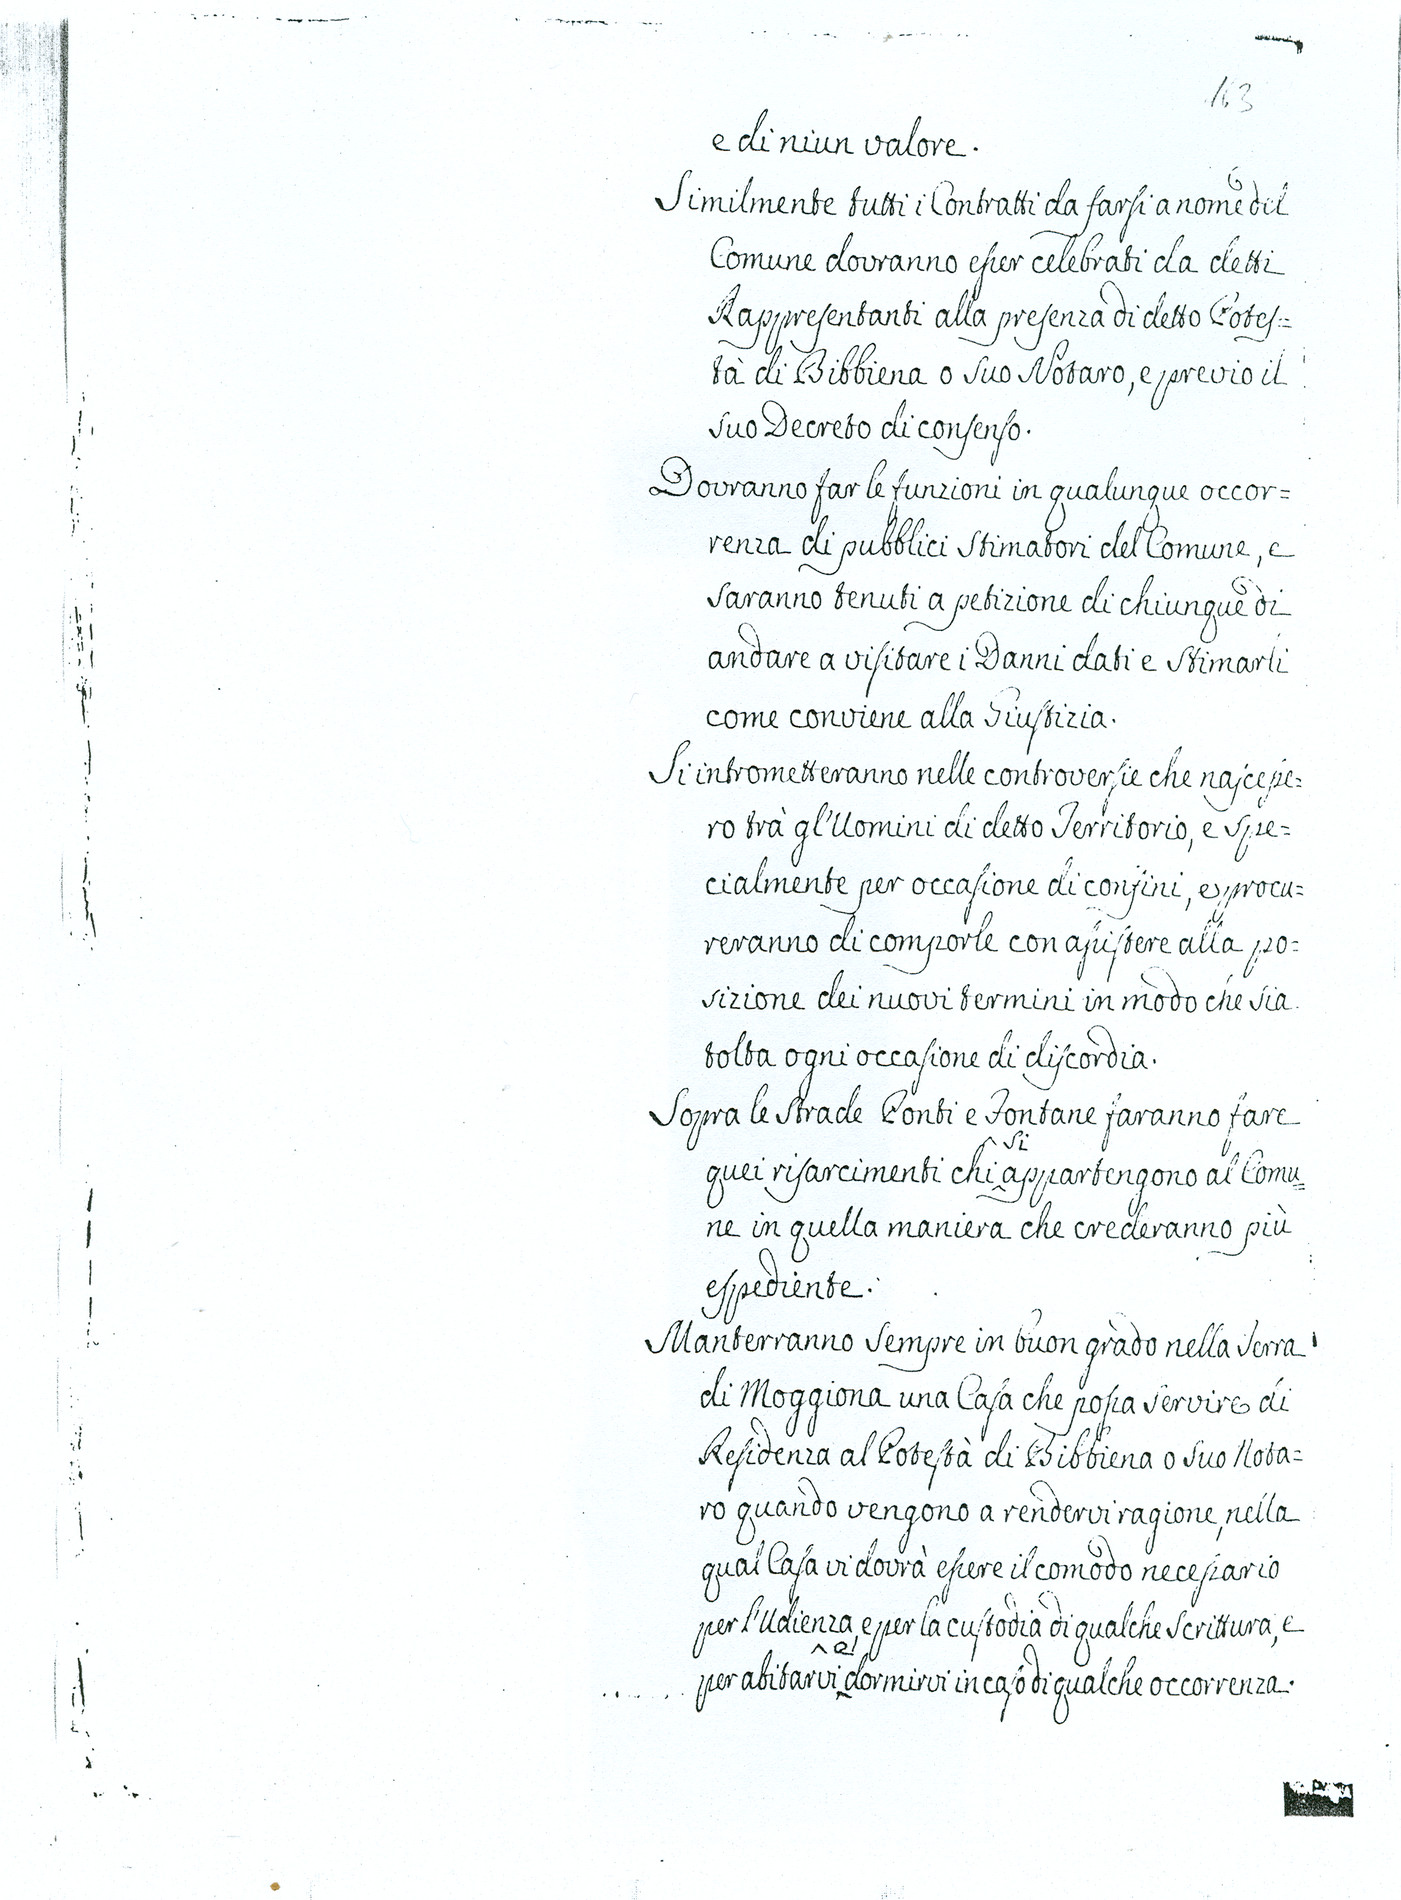 163
e di niun valore.
Similmente tutti i Contratti da farsi a nome del
Comune dovranno esser celebrati da detti
Rappresentanti alla presenza di detto Potes=
tà di Bibbiena o suo Notaro, e previo il
suo Decreto di consenso.
Dovranno far le funzioni in qualunque occor=
renza di pubblici Stimatori del Comune, e
saranno tenuti a petizione di chiunque di
andare a visitare i Danni dati e Stimarli
come conviene alla Giustizia.
Si intrometteranno nelle controversie che nascesse=
ro trà gl'Uomini di detto Territorio, e spe=
cialmente per occasione di confini, e procu=
reranno di comporle con assistere alla po=
sizione dei nuovi termini in modo che sia
tolta ogni occasione di discordia.
Sopra le Strade Ponti e Fontane faranno fare
^ si
quei risarcimenti chi appartengono al Comu=
ne in quella maniera che crederanno più
espediente.
Manterranno sempre in buon grado nella Terra
di Moggiona una Casa che possa servire di
Residenza al Potestà di Bibbiena o suo Nota=
ro quando vengono a rendervi ragione, nella
qual Casa vi dovrà essere il comodo necessario
per l'Udienza, e per la custodia di qualche Scrittura, e
^ e
per abitarvi dormirvi in caso di qualche occorrenza.